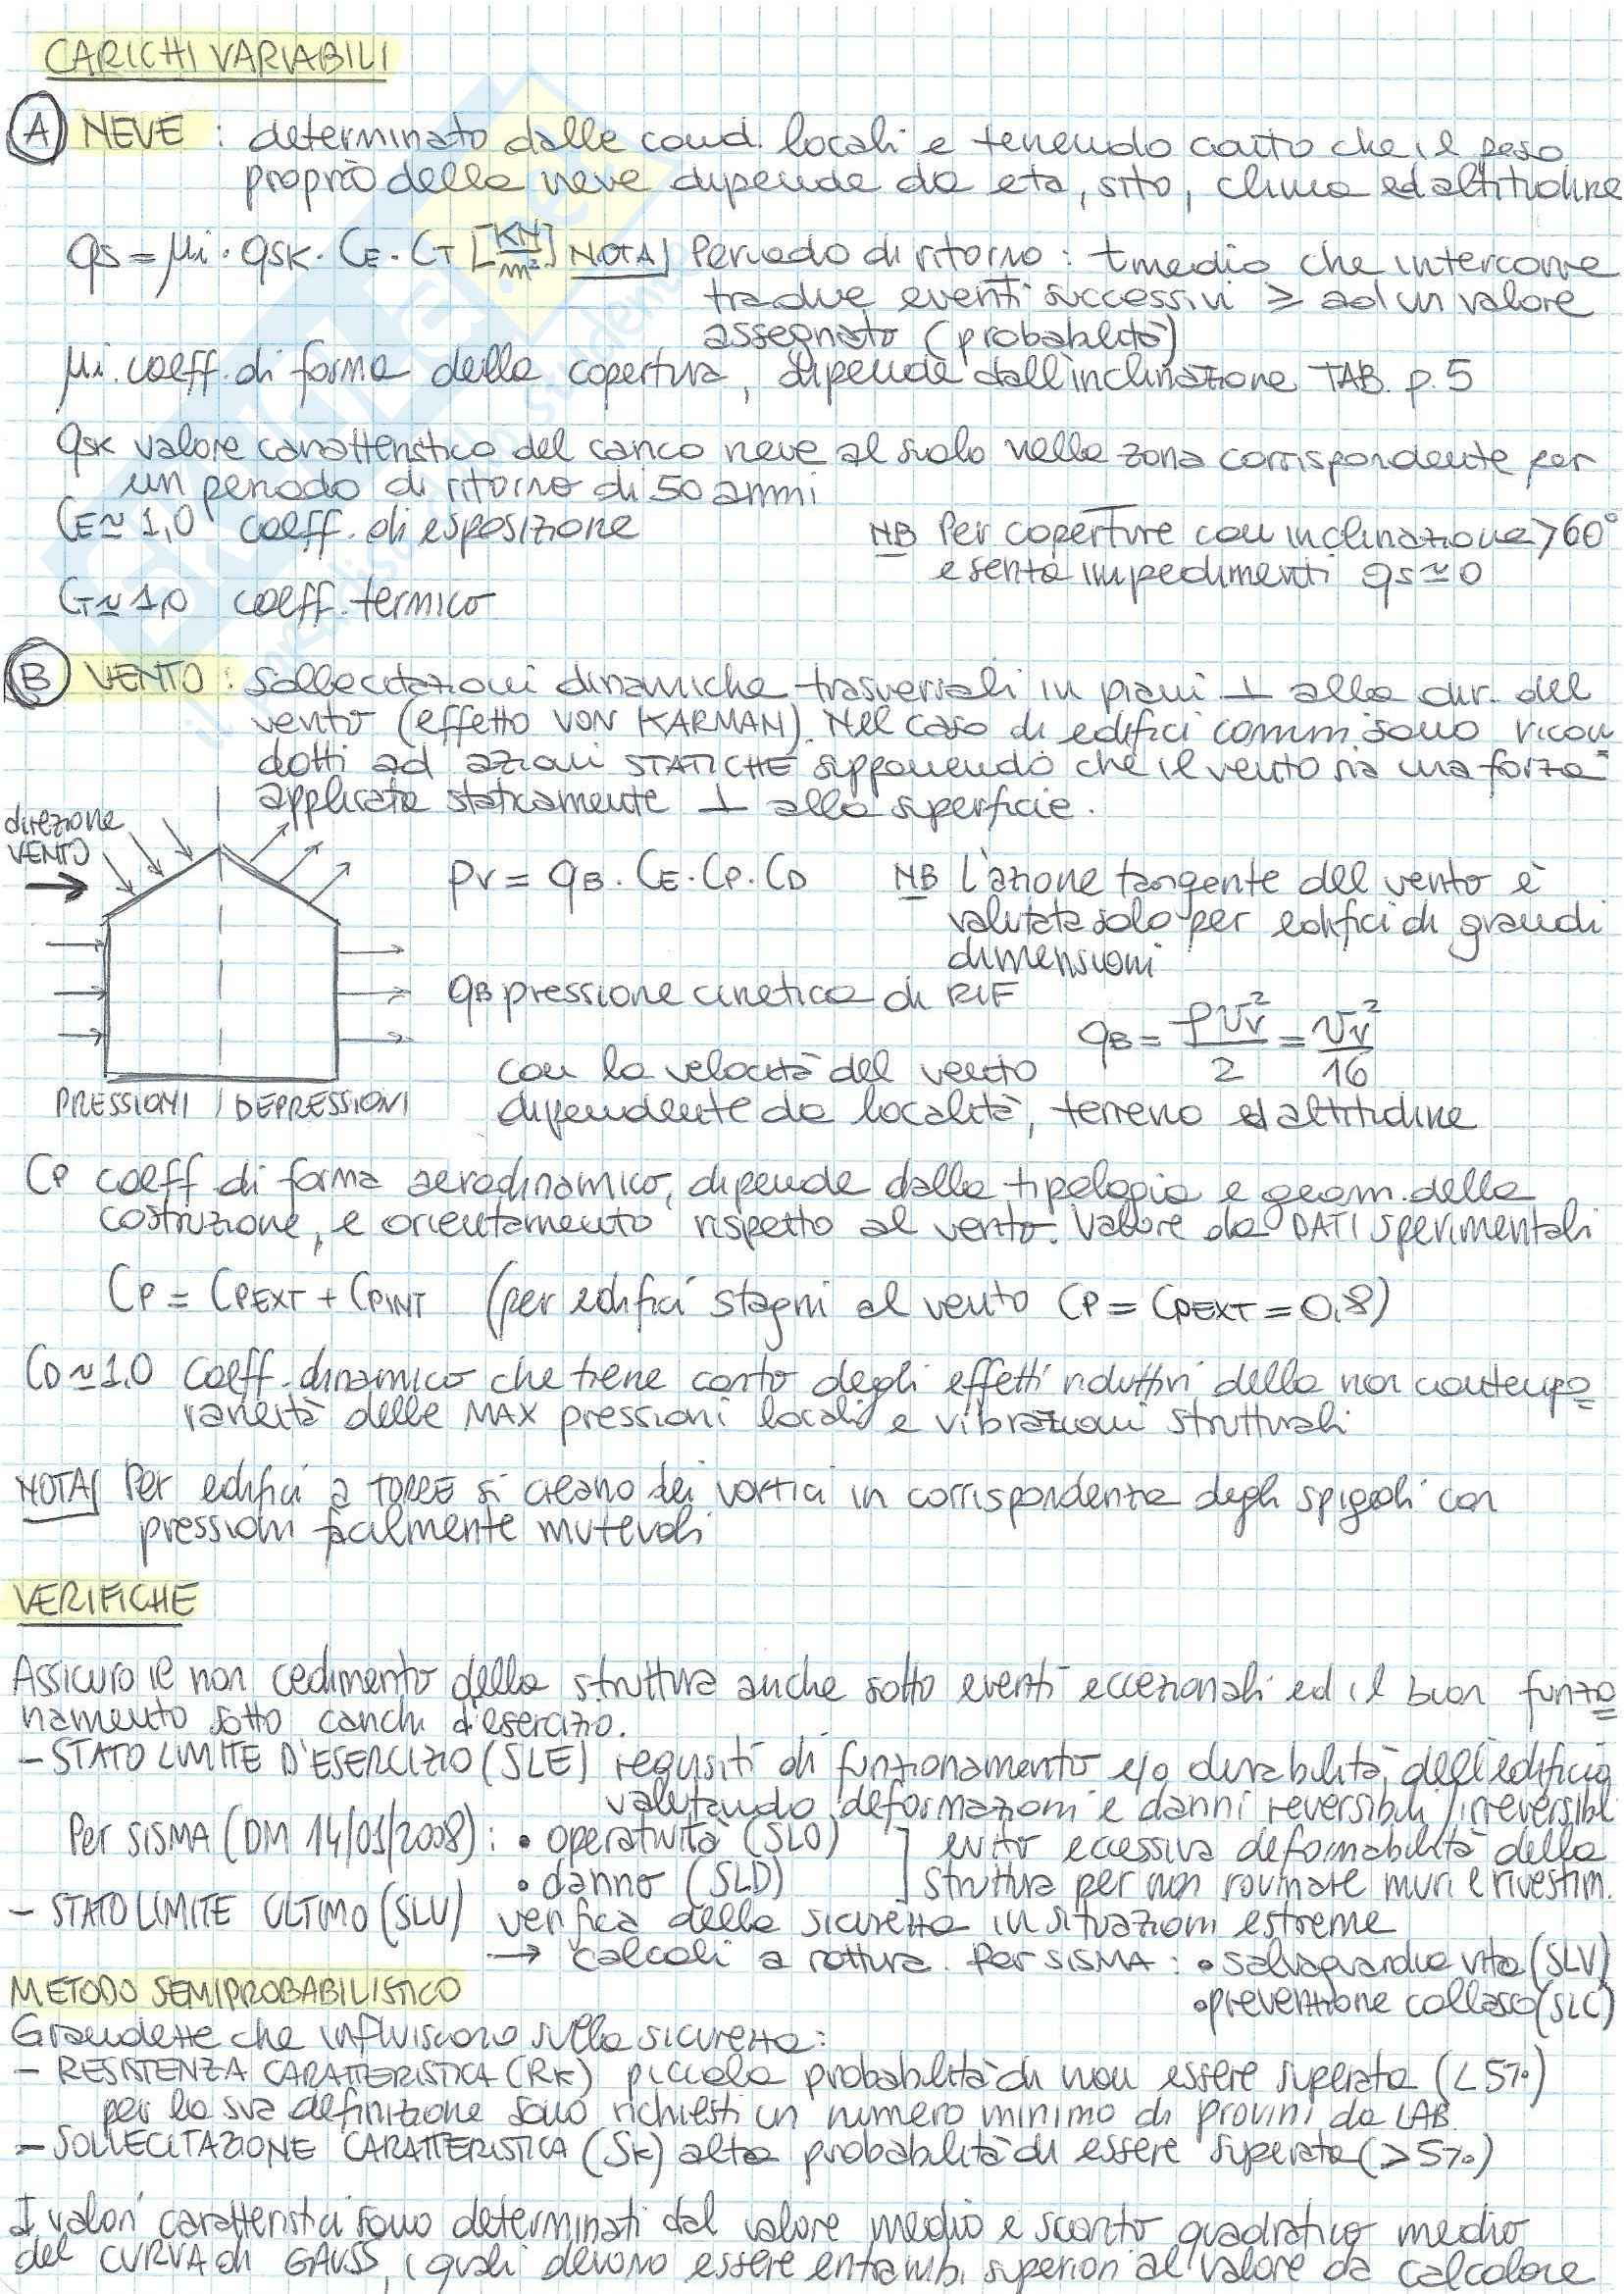 CARICHI VARIABILI
A NEVE : determinato dalle cond. locali e tenendo conto che il peso
proprio della neve dipende da età, sito, clima ed altitudine
qs = μi · qsk · CE · CT [KN/m²] NOTA Periodo di ritorno : tmedio che intercorre
tra due eventi successivi ≥ ad un valore
assegnato (probabilità)
μi. coeff. di forma della copertura, dipende dall'inclinazione TAB. p.5
qsk valore caratteristico del carico neve al suolo nella zona corrispondente per
un periodo di ritorno di 50 anni
CE ≃ 1,0 coeff. di esposizione
NB Per coperture con inclinazione > 60°
e senza impedimenti qs ≃ 0
CT ≃ 1,0 coeff. termico
B VENTO : sollecitazioni dinamiche trasversali in piani ⊥ alla dir. del
vento (effetto VON KARMAN). Nel caso di edifici comuni sono ricon
dotti ad azioni STATICHE supponendo che il vento sia una forza
applicata staticamente ⊥ alla superficie.
direzione
VENTO
pv = qB · CE · CP · CD NB L'azione tangente del vento è
valutata solo per edifici di grandi
dimensioni
qB pressione cinetica di RIF
qB = ρ vv²/2 = vv²/16
con la velocità del vento
PRESSIONI | DEPRESSIONI
dipendente da località, terreno ed altitudine
CP coeff di forma aerodinamico, dipende dalla tipologia e geom. della
costruzione, e orientamento rispetto al vento. Valore da DATI sperimentali
CP = CPEXT + CPINT (per edifici stagni al vento CP = CPEXT = 0,8)
CD ≃ 1,0 coeff. dinamico che tiene conto degli effetti riduttivi della non contempo
raneità delle MAX pressioni locali e vibrazioni strutturali
NOTA Per edifici a TORRE si creano dei vortici in corrispondenza degli spigoli con
pressioni facilmente mutevoli
VERIFICHE
Assicuro il non cedimento della struttura anche sotto eventi eccezionali ed il buon funzio
namento sotto carichi d'esercizio.
- STATO LIMITE D'ESERCIZIO (SLE) requisiti di funzionamento e/o durabilità dell'edificio
valutando deformazioni e danni reversibili/irreversibli
Per SISMA (DM 14/01/2008) : • operatività (SLO)
• danno (SLD)
evito eccessiva deformabilità della
struttura per non rovinare muri e rivestim.
- STATO LIMITE ULTIMO (SLU) verifica della sicurezza in situazioni estreme
→ calcoli a rottura. Per SISMA : • salvaguardia vita (SLV)
• prevenzione collasso (SLC)
METODO SEMIPROBABILISTICO
Grandezze che influiscono sulla sicurezza:
- RESISTENZA CARATTERISTICA (RK) piccola probabilità di non essere superata (<5%)
per la sua definizione sono richiesti un numero minimo di provini da LAB.
- SOLLECITAZIONE CARATTERISTICA (SK) alta probabilità di essere superata (>5%)
I valori caratteristici sono determinati dal valore medio e scarto quadratico medio
del CURVA di GAUSS, i quali devono essere entrambi superiori al valore da calcolare